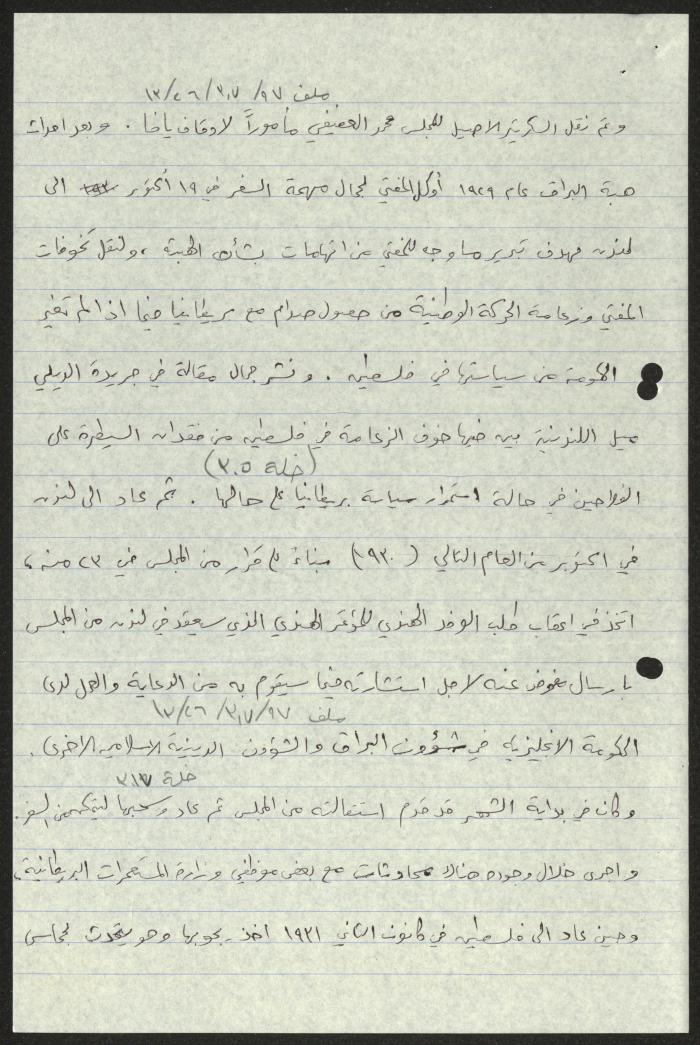 ملف ١٣/٢٦/٣١٧/٩٧
وتم نقل السكرتير الاصيل للمجلس محمد العفيفي مأموراً لاوقاف يافا . وبعد احداث
هبة البراق عام ١٩٢٩ أوكل المفتي لجمال مهمة السفر في ١٩ أكتوبر الى
لندن بهدف تبرير ما وجه للمفتي من اتهامات بشأن الهبة ، ولنقل تخوفات
المفتي وزعامة الحركة الوطنية من حصول صدام مع بريطانيا فيما اذا لم تغير
الحكومة من سياستها في فلسطين . ونشر جمال مقالة في جريدة الديلي
ميل اللندنية بين فيها خوف الزعامة في فلسطين من فقدان السيطرة على
(خلة ٣٠٥)
الفلاحين في حالة استمرار سياسة بريطانيا على حالها . ثم عاد الى لندن
في اكتوبر من العام التالي (١٩٣٠) بناء على قرار من المجلس في ٢٣ منه ،
اتخذ في اعقاب طلب الوفد الهندي للمؤتمر الهندي الذي سيعقد في لندن من المجلس
بارسال مفوض عنه لاجل استشارته فيما سيقوم به من الدعاية والعمل لدى
ملف ١٣/٢٦/٣١٧/٩٧
الحكومة الانجليزية في شؤون البراق والشؤون الدينية الاسلامية الاخرى .
خلة ٣١٧
وكان في بداية الشهر قد قدم استقالته من المجلس ثم عاد وسحبها ليتمكن من السفر .
واجرى خلال وجوده هناك محادثات مع بعض موظفي وزارة المستعمرات البريطانية ،
وحين عاد الى فلسطين في كانون الثاني ١٩٣١ اخذ يجوبها وهو يتحدث لمجالس